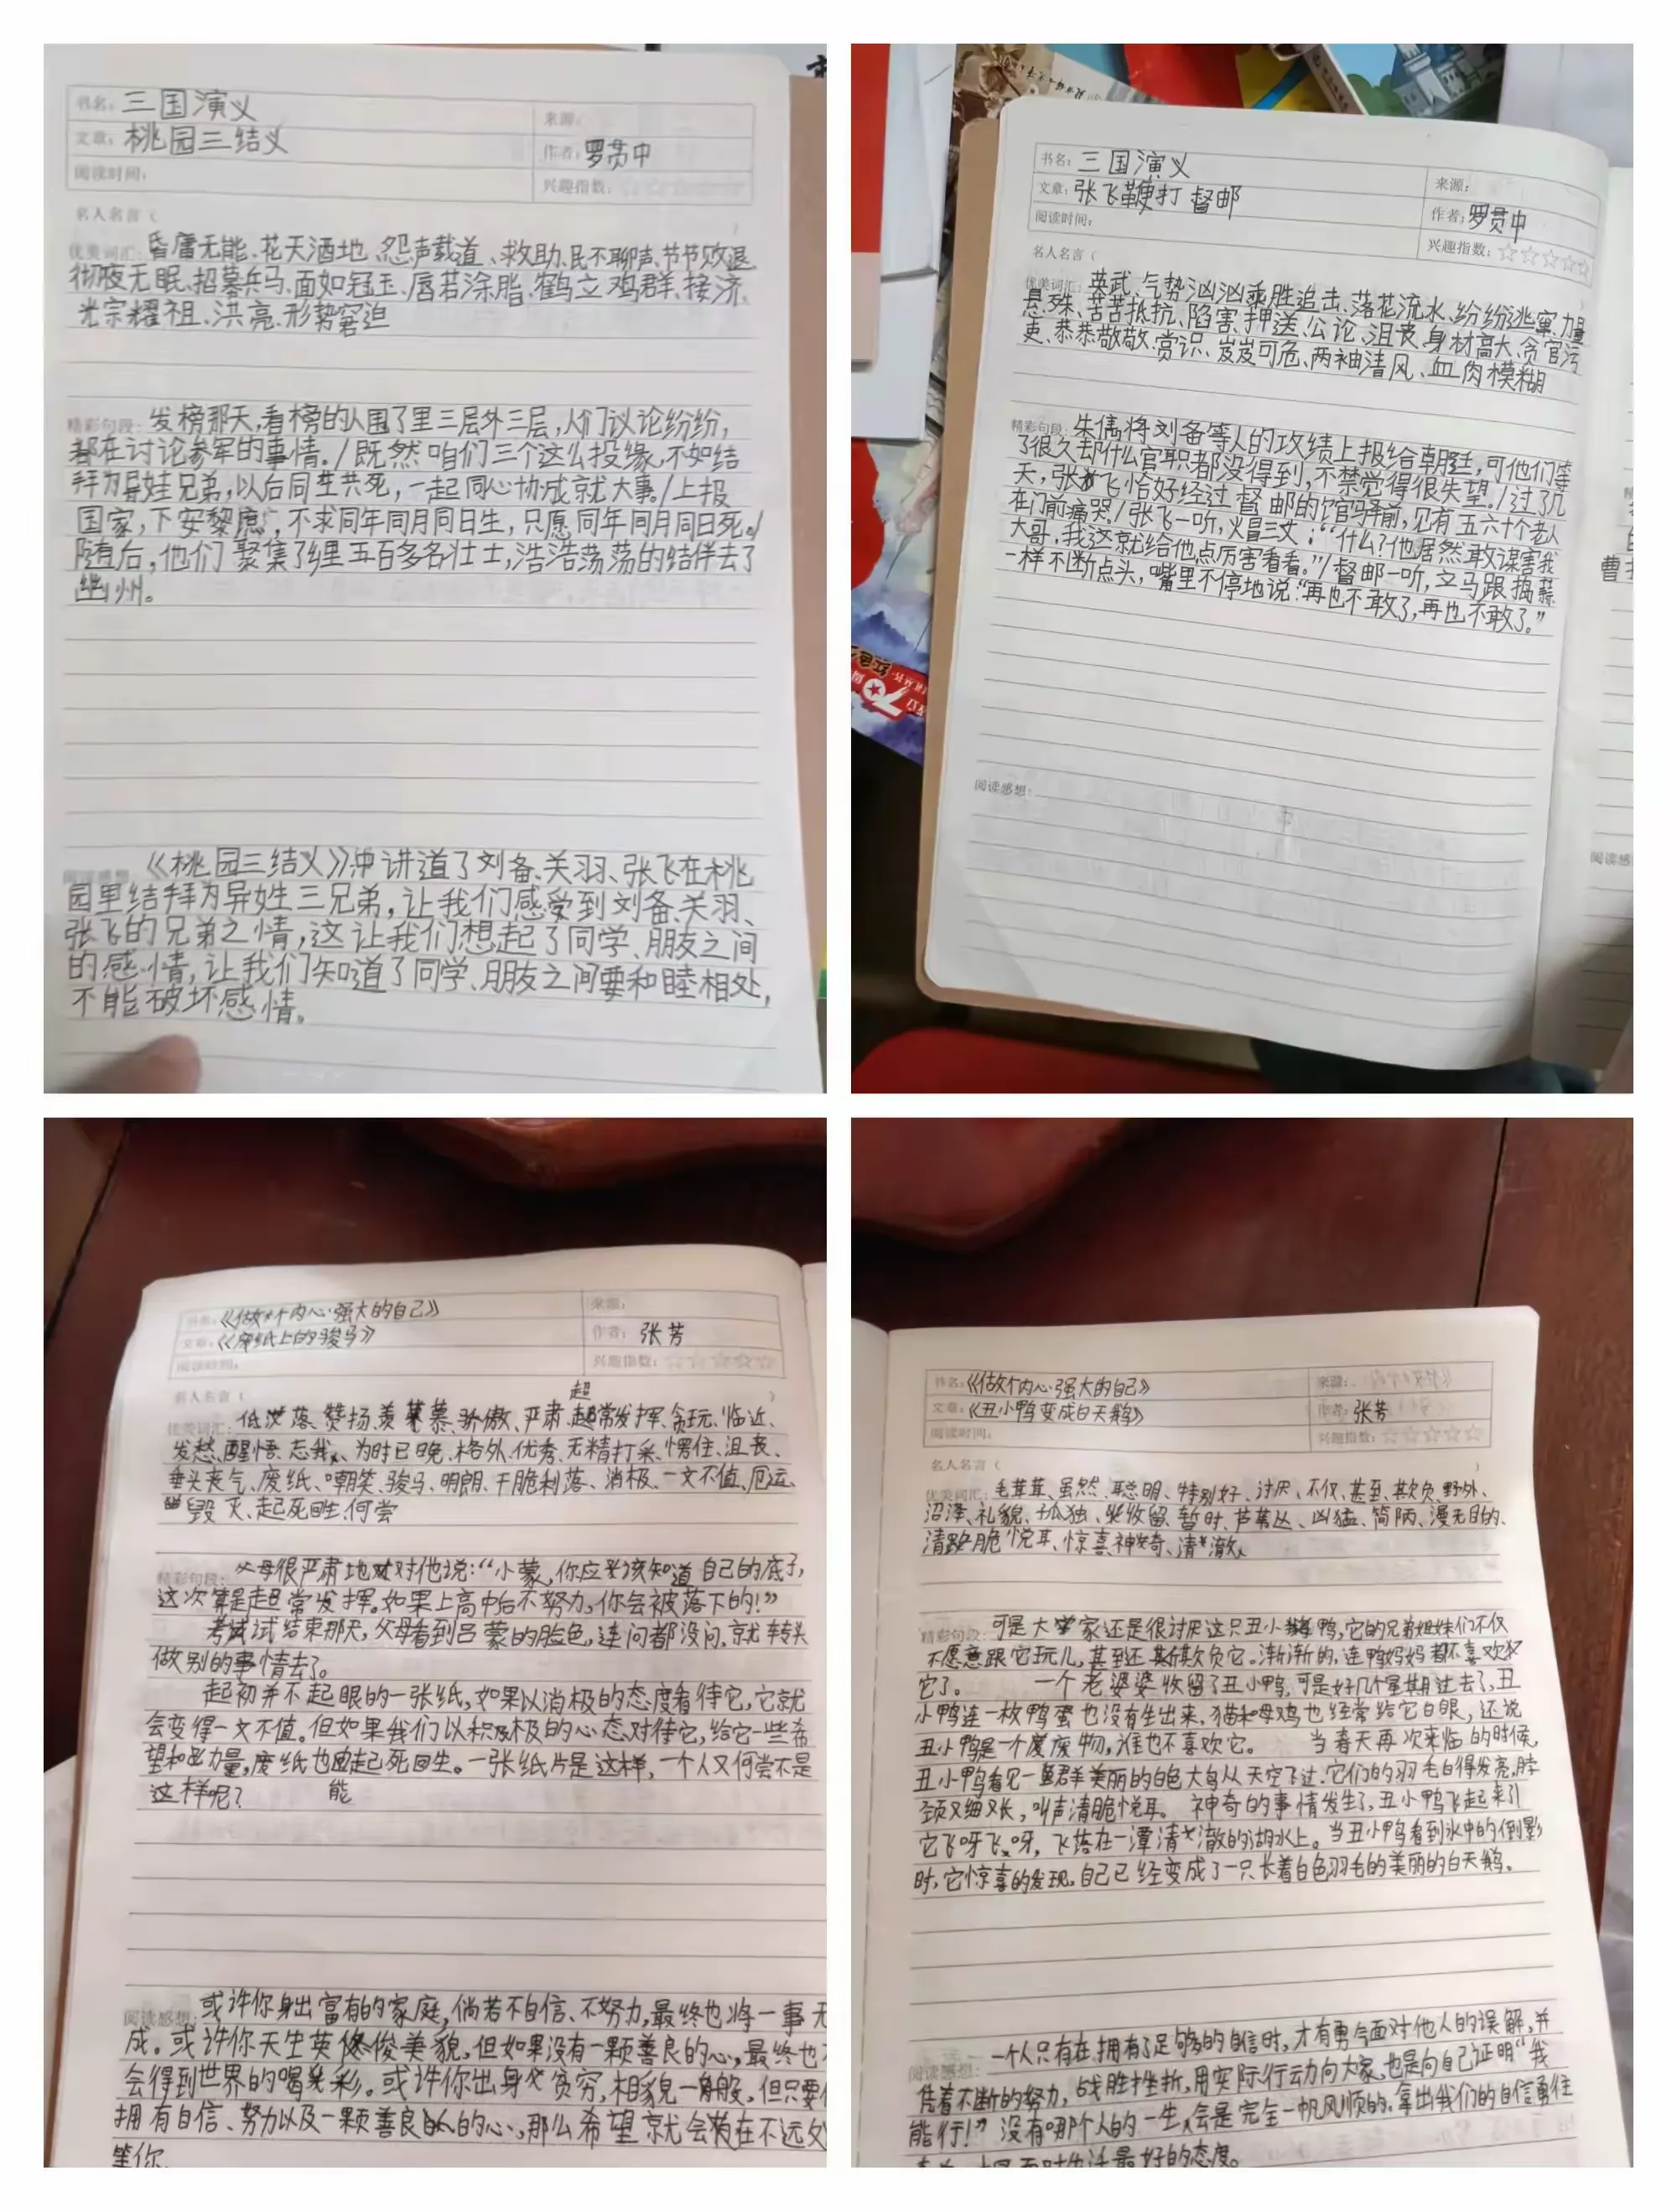 书名：三国演义
来源：
文章：桃园三结义
作者：罗贯中
阅读时间：
兴趣指数：☆☆☆☆☆
名人名言（ ）
优美词汇：昏庸无能、花天酒地、怨声载道、救助、民不聊声、节节败退、
彻夜无眠、招募兵马、面如冠玉、唇若涂脂、鹤立鸡群、接济、
光宗耀祖、洪亮、形势窘迫
精彩句段：发榜那天，看榜的人围了里三层外三层，人们议论纷纷，
都在讨论参军的事情。/既然咱们三个这么投缘，不如结
拜为异姓兄弟，以后同生共死，一起同心协成就大事。/上报
国家，下安黎庶，不求同年同月同日生，只愿同年同月同日死。/
随后，他们聚集了乡里五百多名壮士，浩浩荡荡的结伴去了
幽州。
阅读感想：《桃园三结义》中讲道了刘备、关羽、张飞在桃
园里结拜为异姓三兄弟，让我们感受到刘备、关羽、
张飞的兄弟之情，这让我们想起了同学、朋友之间
的感情，让我们知道了同学、朋友之间要和睦相处，
不能破坏感情。
书名：三国演义
来源：
文章：张飞鞭打督邮
作者：罗贯中
阅读时间：
兴趣指数：☆☆☆☆☆
名人名言（ ）
优美词汇：英武、气势汹汹、乘胜追击、落花流水、纷纷逃窜、力量
悬殊、苦苦抵抗、陷害、押送、公论、沮丧、身材高大、贪官污
吏、恭恭敬敬、赏识、岌岌可危、两袖清风、血肉模糊
精彩句段：朱儁将刘备等人的攻绩上报给朝廷，可他们等
了很久却什么官职都没得到，不禁觉得很失望。/过了几
天，张飞恰好经过督邮的馆驿前，见有五六十个老人
在门前痛哭。/张飞一听，火冒三丈：“什么？他居然敢谋害我
大哥，我这就给他点厉害看看。”/督邮一听，立马跟捣蒜
一样不断点头，嘴里不停地说：“再也不敢了，再也不敢了。”
阅读感想：
曹
阅读感
书名：《做个内心强大的自己》
来源：
文章：《废纸上的骏马》
作者：张芳
阅读时间：
兴趣指数：☆☆☆☆☆
名人名言（ ）
超
优美词汇：低落、赞扬、羡慕、骄傲、严肃、超常发挥、贪玩、临近、
发愁、醒悟、忘我、为时已晚、格外、优秀、无精打采、愣住、沮丧、
垂头丧气、废纸、嘲笑、骏马、明朗、干脆利落、消极、一文不值、厄运、
毁灭、起死回生、何尝
精彩句段：父母很严肃地对他说：“小蒙，你应该知道自己的底子，
这次算是超常发挥。如果上高中后不努力，你会被落下的！”
考试结束那天，父母看到吕蒙的脸色，连问都没问，就转头
做别的事情去了。
起初并不起眼的一张纸，如果以消极的态度看待它，它就
会变得一文不值。但如果我们以积极的心态对待它，给它一些希
望和力量，废纸也起死回生。一张纸片是这样，一个人又何尝不是
这样呢？
能
阅读感想：或许你身出富有的家庭，倘若不自信、不努力，最终也将一事无
成。或许你天生英俊美貌，但如果没有一颗善良的心，最终也
会得到世界的喝彩。或许你出身贫穷，相貌一般，但只要
拥有自信、努力以及一颗善良的心，那么希望就会在不远处
等你
书名：《做个内心强大的自己》
来源：
文章：《丑小鸭变成白天鹅》
作者：张芳
阅读时间：
兴趣指数：☆☆☆☆☆
名人名言（ ）
优美词汇：毛茸茸、虽然、聪明、特别好、讨厌、不仅、甚至、欺负、野外、
沼泽、礼貌、孤独、收留、暂时、芦苇丛、凶猛、简陋、漫无目的、
清脆悦耳、惊喜、神奇、清澈
精彩句段：可是大家还是很讨厌这只丑小鸭，它的兄弟姐妹们不仅
不愿意跟它玩儿，甚至还欺负它。渐渐的，连鸭妈妈都不喜欢
它了。 一个老婆婆收留了丑小鸭，可是好几个星期过去了，丑
小鸭连一枚鸭蛋也没有生出来，猫和母鸡也经常给它白眼，还说
丑小鸭是一个废物，谁也不喜欢它。 当春天再次来临的时候，
丑小鸭看见一群美丽的白色大鸟从天空飞过，它们的羽毛白得发亮，脖
颈又细又长，叫声清脆悦耳。 神奇的事情发生了，丑小鸭飞起来！
它飞呀飞呀，飞落在一潭清澈的湖水上。当丑小鸭看到水中的倒影
时，它惊喜的发现，自己已经变成了一只长着白色羽毛的美丽的白天鹅。
阅读感想：一个人只有在拥有了足够的自信时，才有勇气面对他人的误解，并
凭着不断的努力，战胜挫折，用实际行动向大家，也是向自己证明“我
能行！”没有哪个人的一生会是完全一帆风顺的，拿出我们的自信勇往
面对生活最好的态度。